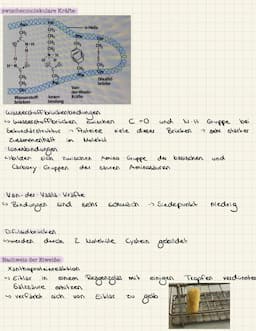 zwischenmolekulare Kräfte
α-Helix
Wasserstoff-
brücken
Ionen-
bindung
Van-
der-Waals-
Kräfte
Disulfid-
brücke
Wasserstoffbrückenbindungen
↳ Wasserstoffbrücken zwischen C=O und N-H Gruppe bei
Sekundärstruktur → Proteine viele dieser Brücken → sehr starker
Zusammenhalt im Molekül
Ionenbindungen
↳ bilden sich zwischen Amino Gruppe der basischen und
Carboxy-Gruppen der sauren Aminosäuren
Van-der-Waals-Kräfte
↳ Bindungen sind sehr schwach → Siedepunkt niedrig
Disulfidbrücken
↳ werden durch 2 Moleküle Cystein gebildet
Nachweis der Eiweiße:
Xanthoproteinreaktion
↳ Eiklar in einem Reagenzglas mit einigen Tropfen verdünnter
Salpetersäure erhitzen
↳ verfärbt sich von Eiklar zu gelb